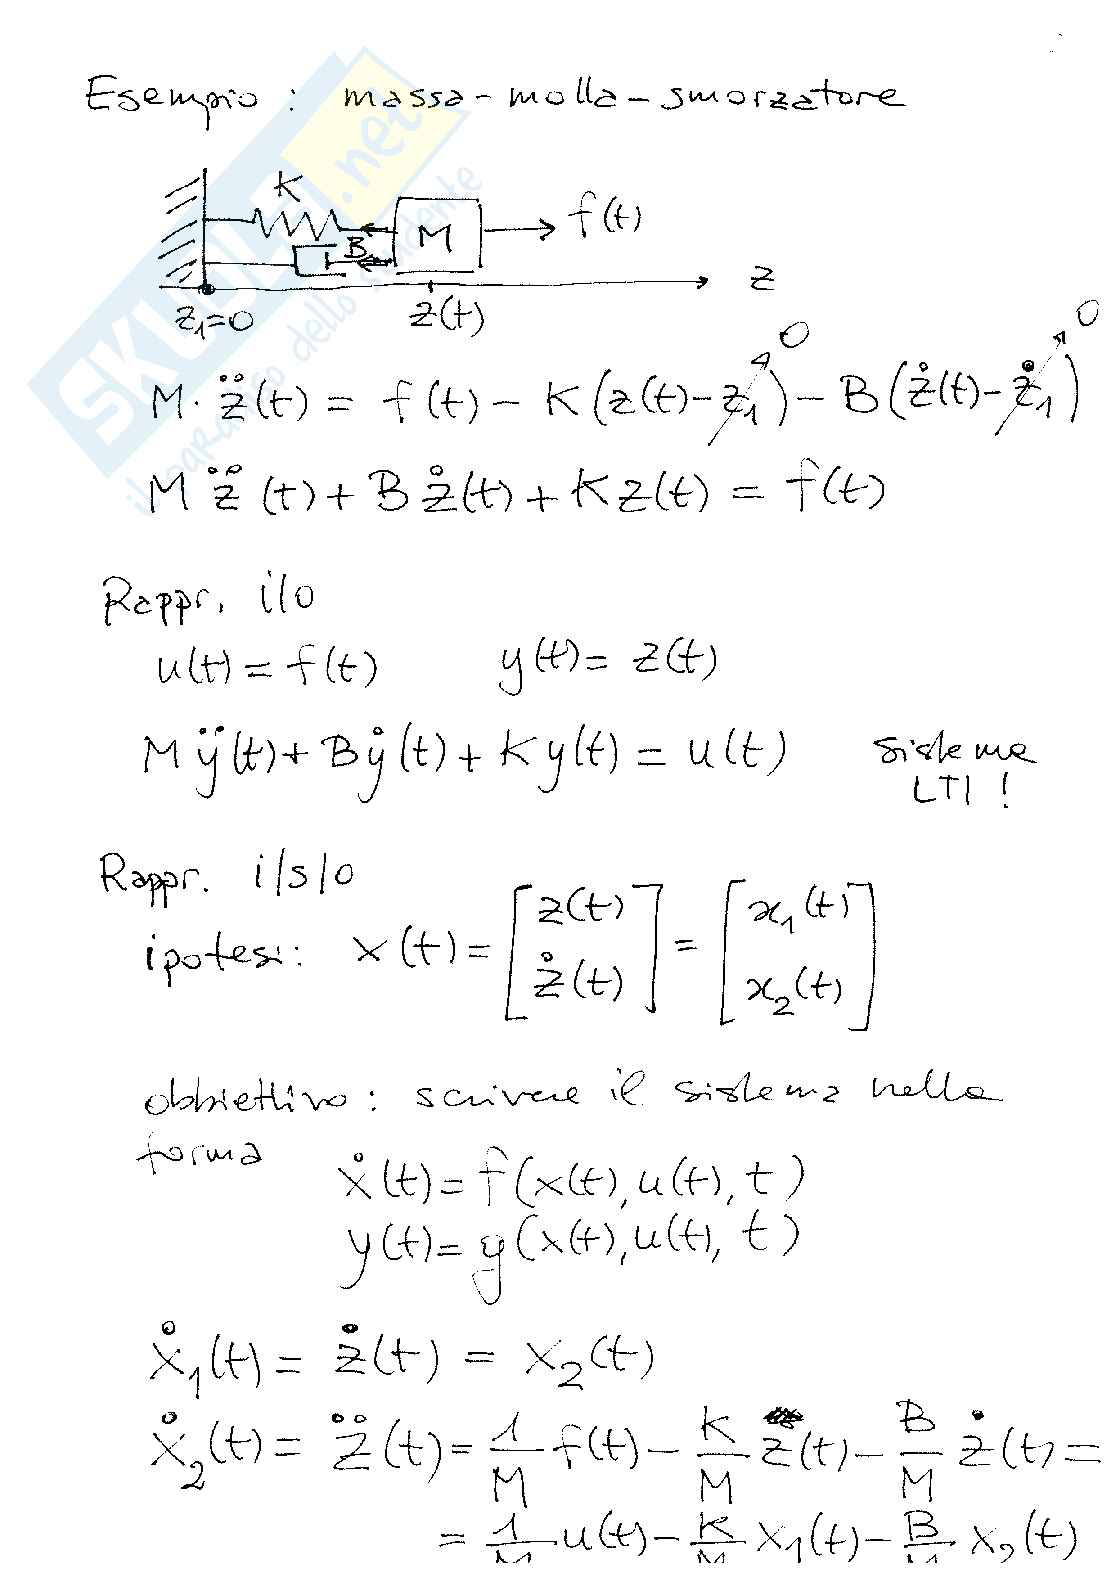 Esempio : massa-molla-smorzatore
K
M
f(t)
B
z
z₁=0
z(t)
0
0
M· z̈(t) = f(t) - K(z(t)-z₁) - B(ż(t)-ż₁)
M z̈(t) + B ż(t) + K z(t) = f(t)
Rappr. i/o
u(t) = f(t) y(t) = z(t)
M ÿ(t) + B ẏ(t) + K y(t) = u(t) sistema
LTI !
Rappr. i/s/o
ipotesi: x(t) = [z(t) ż(t)] = [x₁(t) x₂(t)]
obbiettivo : scrivere il sistema nella
forma
ẋ(t) = f(x(t), u(t), t)
y(t) = g(x(t), u(t), t)
ẋ₁(t) = ż(t) = x₂(t)
ẋ₂(t) = z̈(t) = 1/M f(t) - K/M z(t) - B/M ż(t) =
= 1/M u(t) - K/M x₁(t) - B/M x₂(t)
SKUOLA.net
il paradiso dello studente